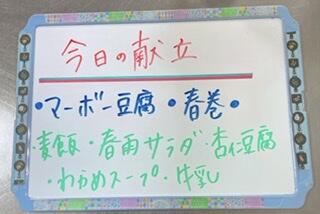 今日の献立
・マーボー豆腐・春巻・
麦飯・春雨サラダ・杏仁豆腐
・わかめスープ・牛乳